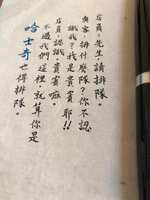 店員：先生請排隊。
貴客：排什麼隊？你不認
識我？我是貴賓耶!!
店員：認識，貴賓嘛。
不過我們這裡，就算你是
哈士奇也得排隊。